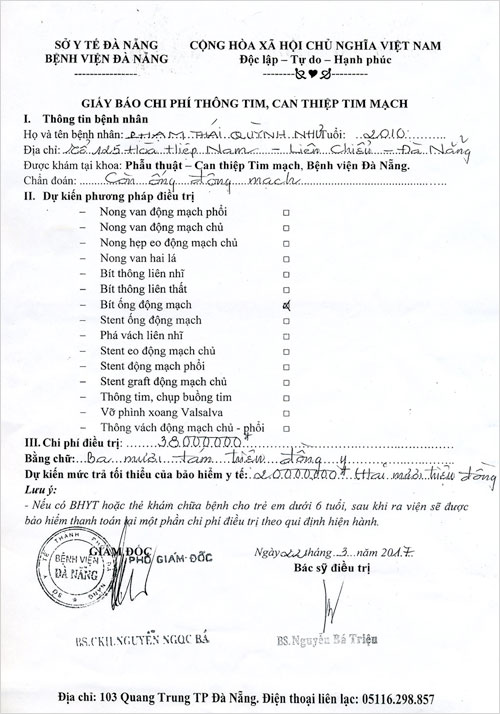 SỞ Y TẾ ĐÀ NẴNG
BỆNH VIỆN ĐÀ NẴNG
CỘNG HÒA XÃ HỘI CHỦ NGHĨA VIỆT NAM
Độc lập – Tự do – Hạnh phúc
GIẤY BÁO CHI PHÍ THÔNG TIM, CAN THIỆP TIM MẠCH
I. Thông tin bệnh nhân
Họ và tên bệnh nhân: PHẠM THÁI QUỲNH NHƯ Tuổi: 2010
Địa chỉ: Tổ 125 Hoà Hiệp Nam - Liên Chiểu - Đà Nẵng
Được khám tại khoa: Phẫu thuật – Can thiệp Tim mạch, Bệnh viện Đà Nẵng.
Chẩn đoán: Còn ống động mạch
II. Dự kiến phương pháp điều trị
– Nong van động mạch phổi □
– Nong van động mạch chủ □
– Nong hẹp eo động mạch chủ □
– Nong van hai lá □
– Bít thông liên nhĩ □
– Bít thông liên thất □
– Bít ống động mạch ☒
– Stent ống động mạch □
– Phá vách liên nhĩ □
– Stent eo động mạch chủ □
– Stent động mạch phổi □
– Stent graft động mạch chủ □
– Thông tim, chụp buồng tim □
– Vỡ phình xoang Valsalva □
– Thông vách động mạch chủ - phổi □
III. Chi phí điều trị: 38000000đ
Bằng chữ: Ba mươi tám triệu đồng y
Dự kiến mức trả tối thiểu của bảo hiểm y tế: 20000000đ (Hai mươi triệu đồng
Lưu ý:
- Nếu có BHYT hoặc thẻ khám chữa bệnh cho trẻ em dưới 6 tuổi, sau khi ra viện sẽ được
bảo hiểm thanh toán lại một phần chi phí điều trị theo qui định hiện hành.
Ngày 22 tháng 3 năm 2017
GIÁM ĐỐC
PHÓ GIÁM ĐỐC
Bác sỹ điều trị
BỆNH VIỆN
ĐÀ NẴNG
BS.CKII.NGUYỄN NGỌC BÁ
BS.Nguyễn Bá Triệu
Địa chỉ: 103 Quang Trung TP Đà Nẵng. Điện thoại liên lạc: 05116.298.857